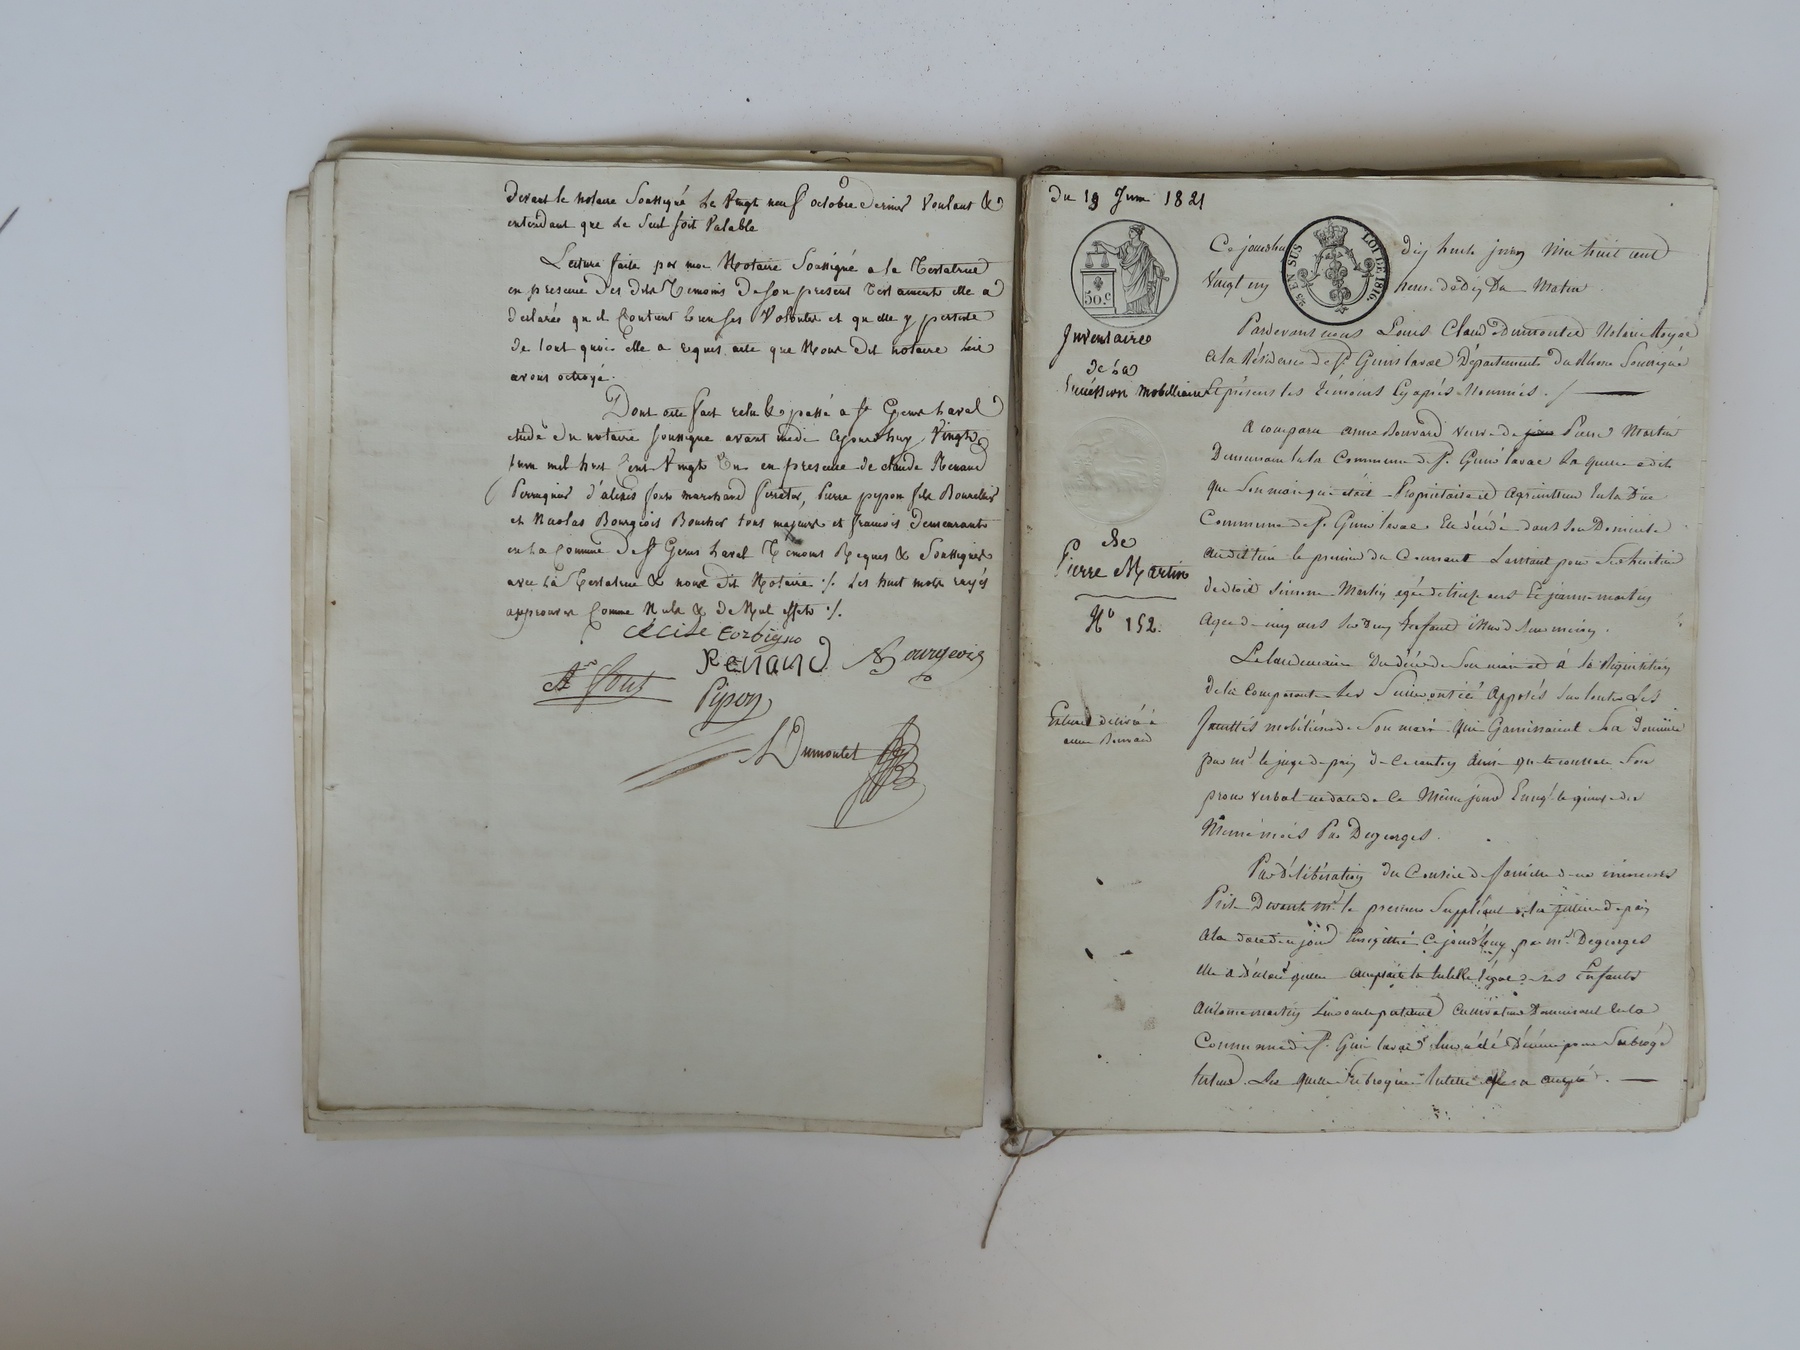 devant le notaire Soussigné le Vingt neuf octobre dernier Voulant &
entendant que le Seul soit Valable
Lecture faite par moi Notaire Soussigné a la Testatrice
en presence des dits Temoins de son present Testament elle a
declaré qu il Contient bien ses Volontés et qu elle y persiste
de tout quoi elle a requis acte que Nous dit notaire lui
avons octroyé.
Dont acte fait relu & passé a St Genis Laval
etude du notaire soussigné avant midi cejourdhuy Vingt
juin mil huit Cent Vingt Un en presence de claude Renaud
Perruquier d'alexis font marchand ferratier, Pierre pipon fils Bourrelier
et Nicolas Bourgeois Boucher tous majeurs et francois demeurants
en la Commune de St Genis Laval Témoins Requis & Soussignés
avec la Testatrice & nous dit Notaire ./. Les huit mots rayés
approuvés Comme Nuls & de Nul effets ./.
CéCile Corbigno
Renaud
Bourgeois
font
Pipon
LDumoulet
du 19 Juin 1821
50.C
EN SUS
LOI DE 1816.
Inventaire
de la
Succéssion mobilliaire
de
Pierre Martin
No 152.
Extrait délivré à
anne Bouvard
Cejourdhui dix huit juin Mil huit cent
Vingt un heure de dix Du Matin.
Pardevant nous Louis Claude Dumoulet Notaire Royal
a la Résidence de St Genis laval Département du Rhone Soussigné
Et présents les témoins Cy après Nommés. /
A comparu anne Bouvard veuve de Pierre Martin
Demeurant en la Commune de St Genis laval La quelle a dit
que Son mari qui était Propriétaire et Agriculteur En la Dite
Commune de St Genis laval Est décédé dans Son Domicile
audit lieu le premier du Courant Laissant pour Ses héritiers
de droit Simon Martin agé de ans Et jeanne martin
Agée de cinq ans Ses deux Enfants issus de Son mariage.
Le lendemain Du décès de Son mari et à la Réquisition
de la Comparante les Scellés ont été Apposés Sur toutes les
facultés mobiliaires de Son mari qui Garnissaient Son Domicile
par Mr le juge de paix de Ce canton Ainsi qu il Conste de Son
procès verbal en date de Ce Même jour Enregé le quinze du
Même mois Par Degeorges.
Par délibération du Conseil de famille des mineurs
Prise Devant Mr le premier Suppléant de la justice de paix
A la date de ce jour Enregistré Cejourdhuy par Mr Degeorges
elle a déclaré qu'elle acceptait la tutelle légale de ses Enfants
Antoine martin leur oncle paternel Cultivateur Demeurant En la
Commune de St Genis laval leur a été Décerné pour Subrogé
tuteur. La quelle Subrogée tutelle il a accepté.